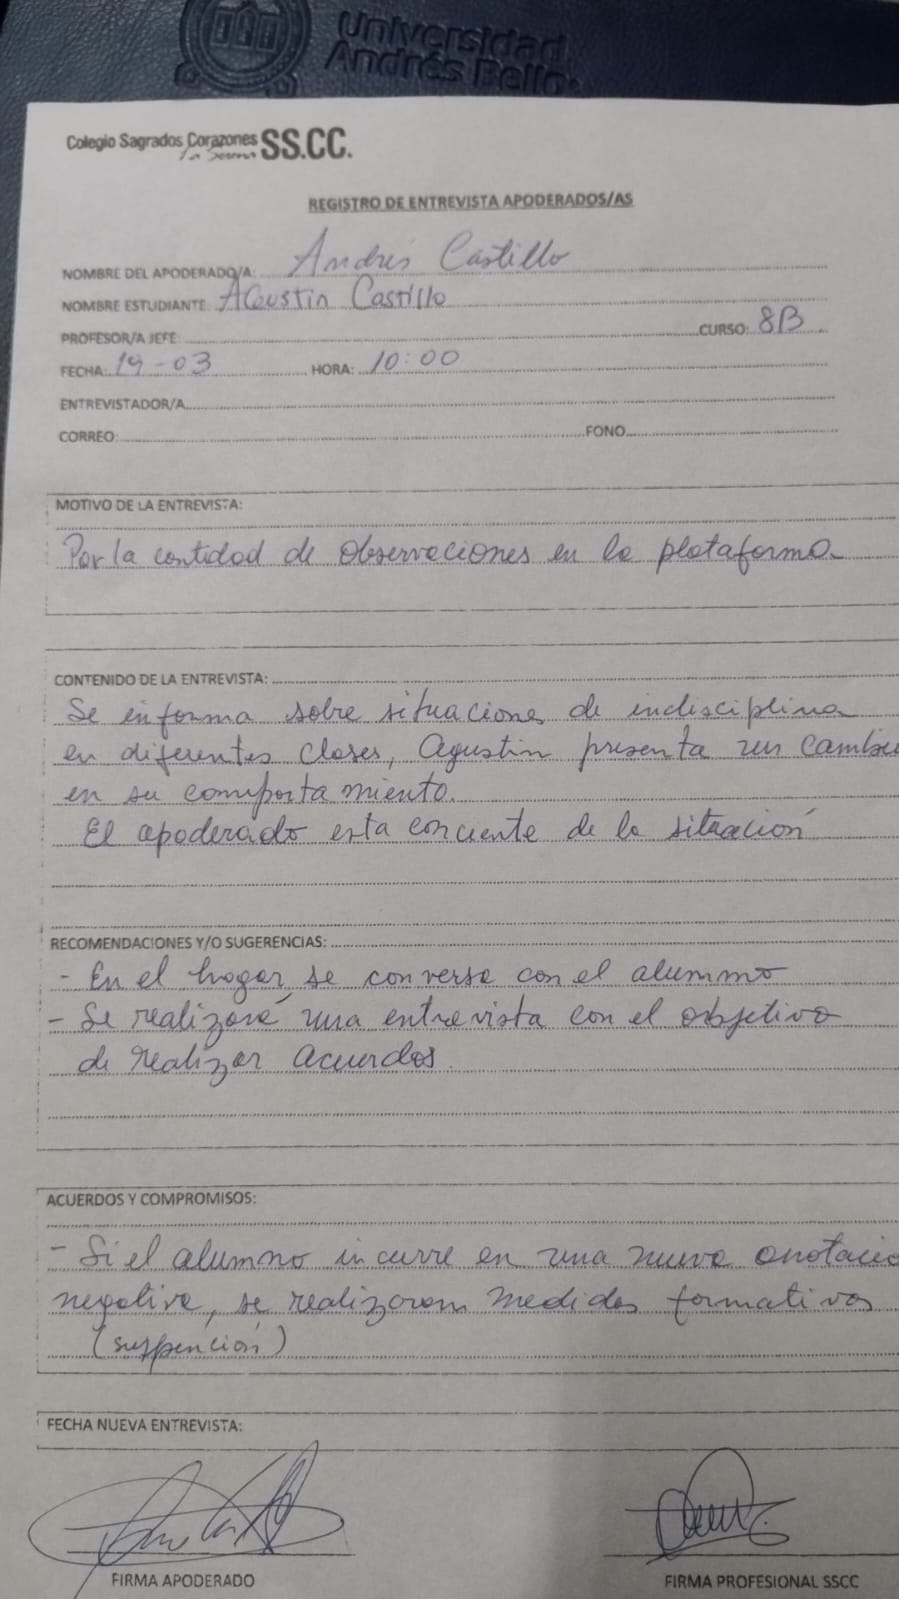 Universidad
Andrés Bello
Colegio Sagrados Corazones SS.CC.
La Serena
REGISTRO DE ENTREVISTA APODERADOS/AS
NOMBRE DEL APODERADO/A: Andrés Castillo
NOMBRE ESTUDIANTE: Agustin Castillo
PROFESOR/A JEFE: CURSO: 8B
FECHA: 19-03 HORA: 10:00
ENTREVISTADOR/A
CORREO: FONO
MOTIVO DE LA ENTREVISTA:
Por la cantidad de observaciones en la plataforma
CONTENIDO DE LA ENTREVISTA:
Se informa sobre situaciones de indisciplina
en diferentes clases, Agustin presenta un cambio
en su comportamiento.
El apoderado esta conciente de la situación
RECOMENDACIONES Y/O SUGERENCIAS:
- En el hogar, se conversa con el alumno
- Se realizará una entrevista con el objetivo
de realizar acuerdos.
ACUERDOS Y COMPROMISOS:
- Si el alumno incurre en una nueva anotacio
negativa, se realizaran medidas formativas
(suspención)
FECHA NUEVA ENTREVISTA:
FIRMA APODERADO FIRMA PROFESIONAL SSCC